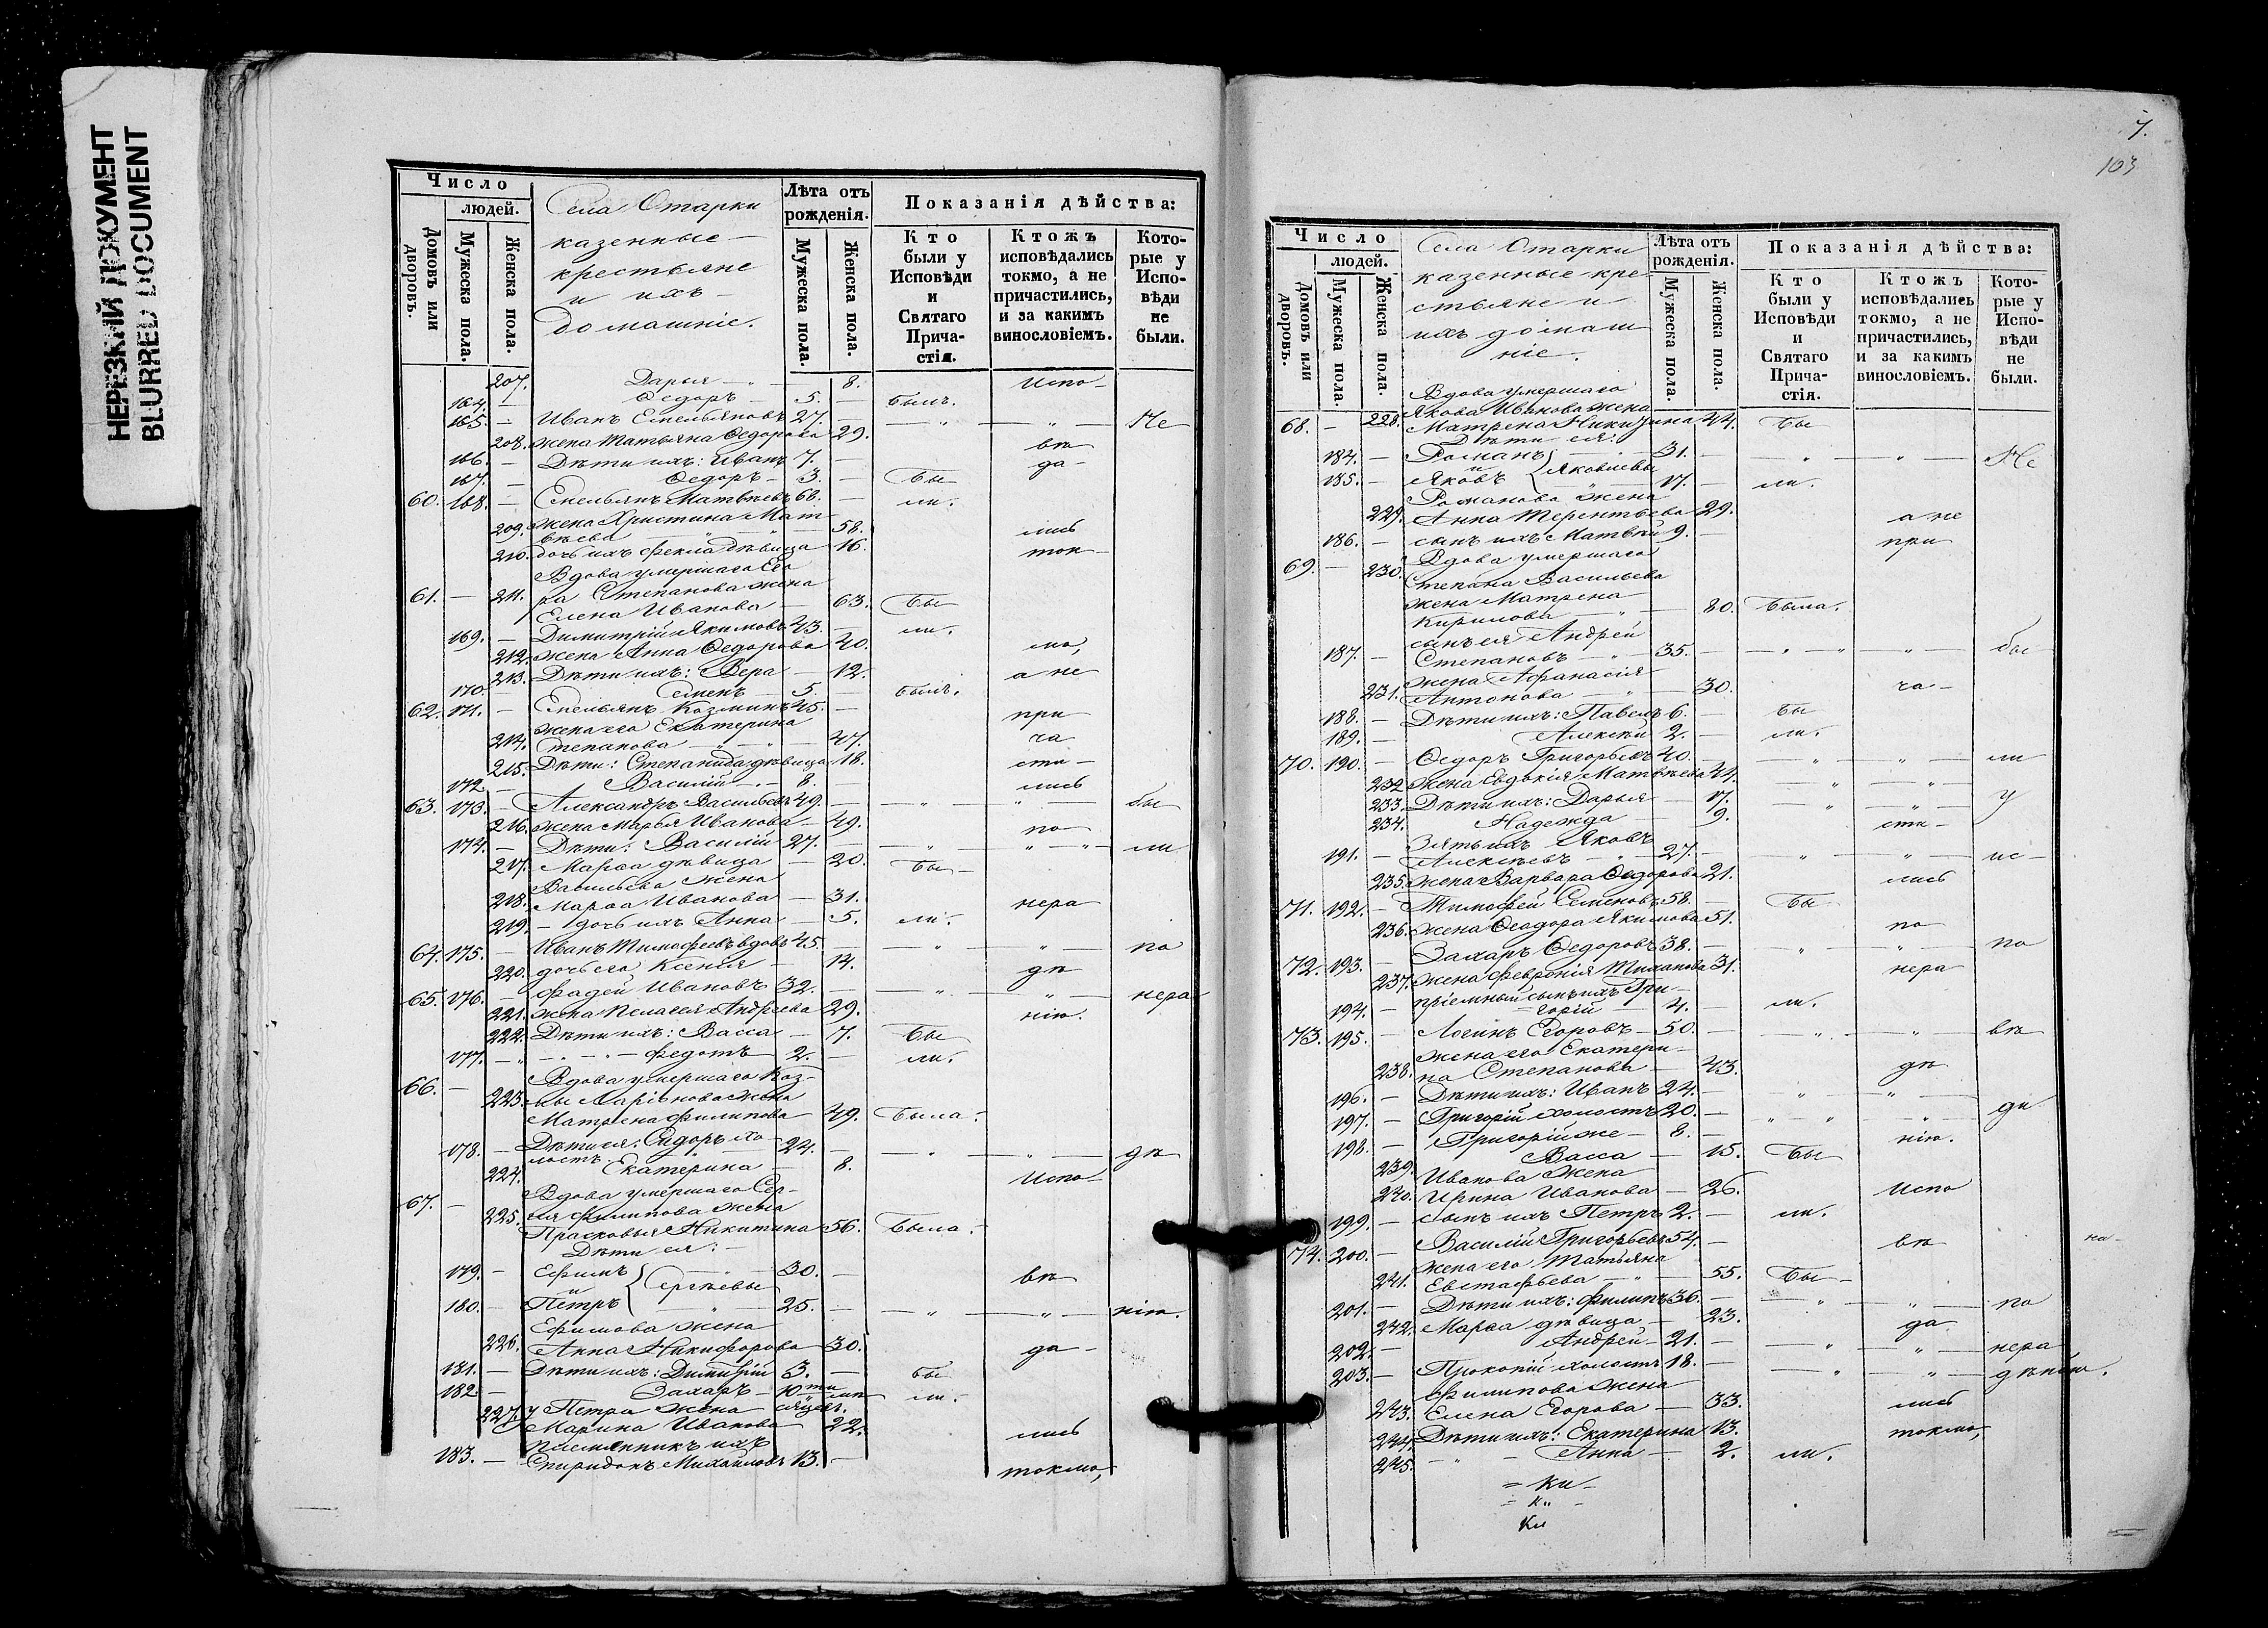 НЕРЕЗКИЙ ДОКУМЕНТ
BLURRED DOCUMENT
Число
людей.
Домовъ или дворовъ.
Мужеска пола.
Женска пола.
Села Отарки
казенные
крестьяне
и ихъ
домашніе.
Лѣта отъ рожденія.
Мужеска пола.
Женска пола.
Показанія дѣйства:
Кто были у Исповѣди и Святаго Прича-стія.
Ктожъ исповѣдались токмо, а не причастились, и за какимъ винословіемъ.
Кото-рые у Испо-вѣди не были.
207. Дарья 8. Испо-
164. — Ѳедоръ 5. — былъ.
165. — Иванъ Емельяновъ 27. — Не
208. жена Татьяна Ѳедорова 29. вѣ
166. — Дѣти ихъ: Иванъ 7. — да-
167. — Ѳедоръ 3. — Бы
60. 168. — Емельянъ Матвѣевъ 68. — ли.
209. жена Христина Мат-
вѣева 58. лись
210. дочь ихъ Фекла дѣвица 16. ток-
Вдова умершаго Его
61. — 211. ра Степанова жена
Елена Иванова 63. Бы
169. — Димитрій Якимовъ 43. — ли.
212. жена Анна Ѳедорова 40. мо,
213. Дѣти ихъ: Вера 12. а не
170. Семенъ 5. былъ.
62. 171. — Емельянъ Козминъ 45. — при
жена его Екатерина
214. Степанова 47. ча
215. Дѣти: Степанида дѣвица 18. сти-
172. — Василій 8. лись
63. 173. — Александръ Васильевъ 49. — бы
216. жена Марья Иванова 49. по
174. — Дѣти: Василій 27. — ли
217. Марѳа дѣвица 20. Бы
Васильева жена
218. Марѳа Иванова 31. нера
219. — дочь ихъ Анна 5. ли.
64. 175. — Иванъ Тимофеевъ вдовъ 45. — по
220. дочь его Ксенія 14. дѣ
65. 176. — Фадей Ивановъ 32. — нера
221. жена Пелагея Андреева 29. нію.
222. Дѣти ихъ: Васса 7. Бы
177. — Федотъ 2. — ли.
66. — Вдова умершаго Коз-
223. мы Маріонова жена
Матрена Филипова 49. Была.
Дѣти ея: Сидоръ хо-
178. — лостъ 24. — дѣ
224. Екатерина 8. Испо-
67. — Вдова умершаго Сер-
225. гѣя Филипова жена
Прасковья Никитина 56. Была.
Дѣти ея:
179. — Ефимъ 30. — вѣ
и Сергѣевы
180. — Петръ 25. — нію.
Ефимова жена
226. Анна Никифорова 30. да-
181. — Дѣти ихъ: Димитрій 3. — бы
182. — Захаръ 10ти мѣ ли.
227. у Петра жена сяцевъ.
Марина Иванова 22. лись
племянникъ ихъ
183. — Спиридонъ Михайловъ 13. — токмо,
7.
103
Число
людей.
Домовъ или дворовъ.
Мужеска пола.
Женска пола.
Села Отарки
казенные кре
стьяне и
ихъ домаш
ніе.
Лѣта отъ рожденія.
Мужеска пола.
Женска пола.
Показанія дѣйства:
Кто были у Исповѣди и Святаго Прича-стія.
Ктожъ исповѣдались токмо, а не причастились, и за какимъ винословіемъ.
Кото-рые у Испо-вѣди не были.
Вдова умершаго
Якова Иванова жена
68. — 228. Матрена Никитина 44. Бы
Дѣти ея:
184. — Романъ 31. — Не
и Яковлевы
185. — Яковъ 17. — ли.
Романова жена
229. Анна Терентьева 29. а не
186. — сынъ ихъ Матвѣй 9. — при
69. — 230. Вдова умершаго
Степана Васильева
жена Матрена
Кирилова 80. Была.
сынъ ея Андрей
187. — Степановъ 35. — бы
жена Афанасія
231. Антонова 30. ча-
188. — Дѣти ихъ: Павелъ 6. — Бы
189. — Алексѣй 2. — ли.
70. 190. — Ѳедоръ Григорьевъ 40. — ли
232. жена Евдокія Матвѣева 44.
233. Дѣти ихъ: Дарья 17. у
234. Надежда 9. сти-
Зять ихъ Яковъ
191. — Алексѣевъ 27. — ис-
235. жена Варвара Ѳедорова 21. лись
71. 192. — Тимофей Семеновъ 58. — Бы
236. жена Ѳеодора Якимова 51. по
72. 193. — Захаръ Ѳедоровъ 38. — по
237. жена Февронія Тиханова 31. нера
пріемный сынъ ихъ Гри-
194. — горій 4. — ли.
73. 195. — Логинъ Егоровъ 50. — вѣ
жена его Екатери-
238. на Степанова 43. дѣ
196. — Дѣти ихъ: Иванъ 24. —
197. — Григорій холостъ 20. — ди
198. — Григорій же 8. — нію.
239. Васса 15. Бы
Иванова жена
240. Ирина Иванова 26. Испо
199. — сынъ ихъ Петръ 2. — ли.
74. 200. — Василій Григорьевъ 54. — вѣ на-
жена его Татьяна
241. Евстафьева 55. Бы
201. — Дѣти ихъ: Филипъ 36. — по
242. Марѳа дѣвица 23. да
202. — Андрей 21. — нера
203. — Прокопій холостъ 18. —
Филипова жена
243. Елена Егорова 33. лись
244. Дѣти ихъ: Екатерина 13. токмо,
245. Анна 2. ли.